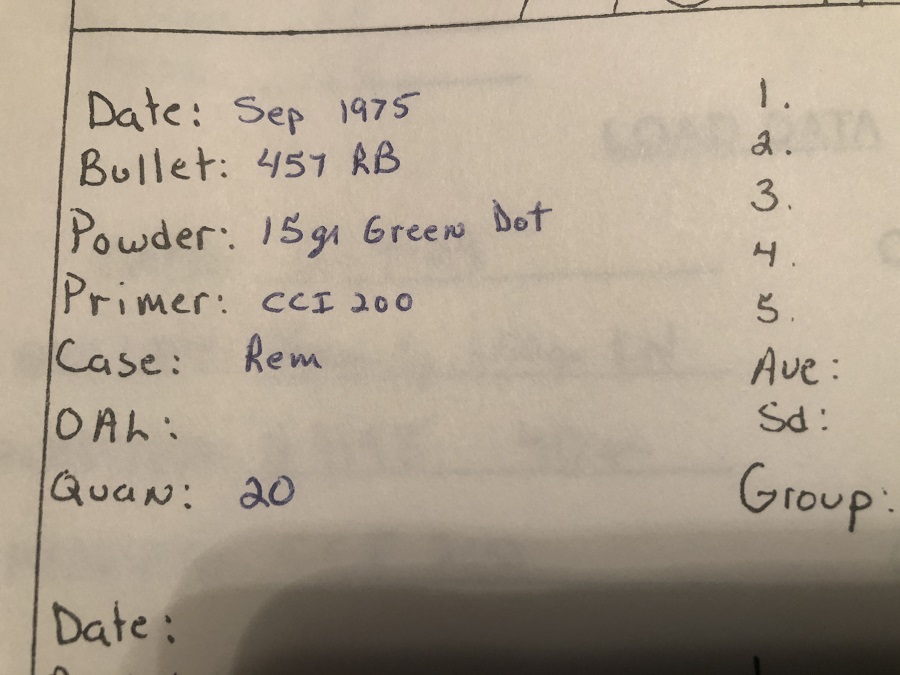 Date: Sep 1975
Bullet: 457 RB
Powder: 15gr Green Dot
Primer: CCI 200
Case: Rem
OAL:
Quan: 20
Date:
1.
2.
3.
4.
5.
Ave:
Sd:
Group:
LOAD DATA